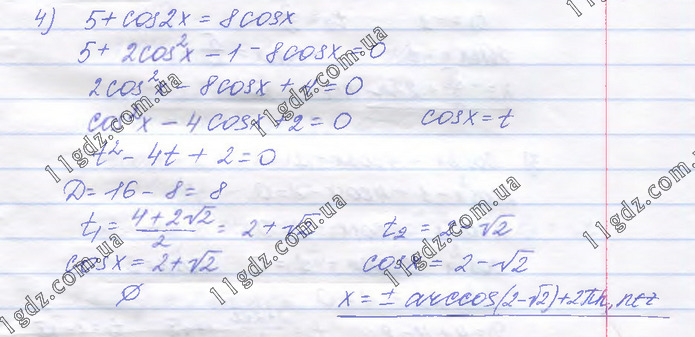 4) 5 + cos2x = 8cosx
5 + 2cos²x - 1 - 8cosx = 0
2cos²x - 8cosx + 4 = 0
cos²x - 4cosx + 2 = 0 cosx = t
t² - 4t + 2 = 0
D = 16 - 8 = 8
t₁ = (4 + 2√2)/2 = 2 + √2 t₂ = 2 - √2
cosx = 2 + √2 cosx = 2 - √2
∅ x = ± arccos(2 - √2) + 2πn, n∈z
11gdz.com.ua
11gdz.com.ua
11gdz.com.ua
11gdz.com.ua
11gdz.com.ua
11gdz.com.ua
11gdz.com.ua